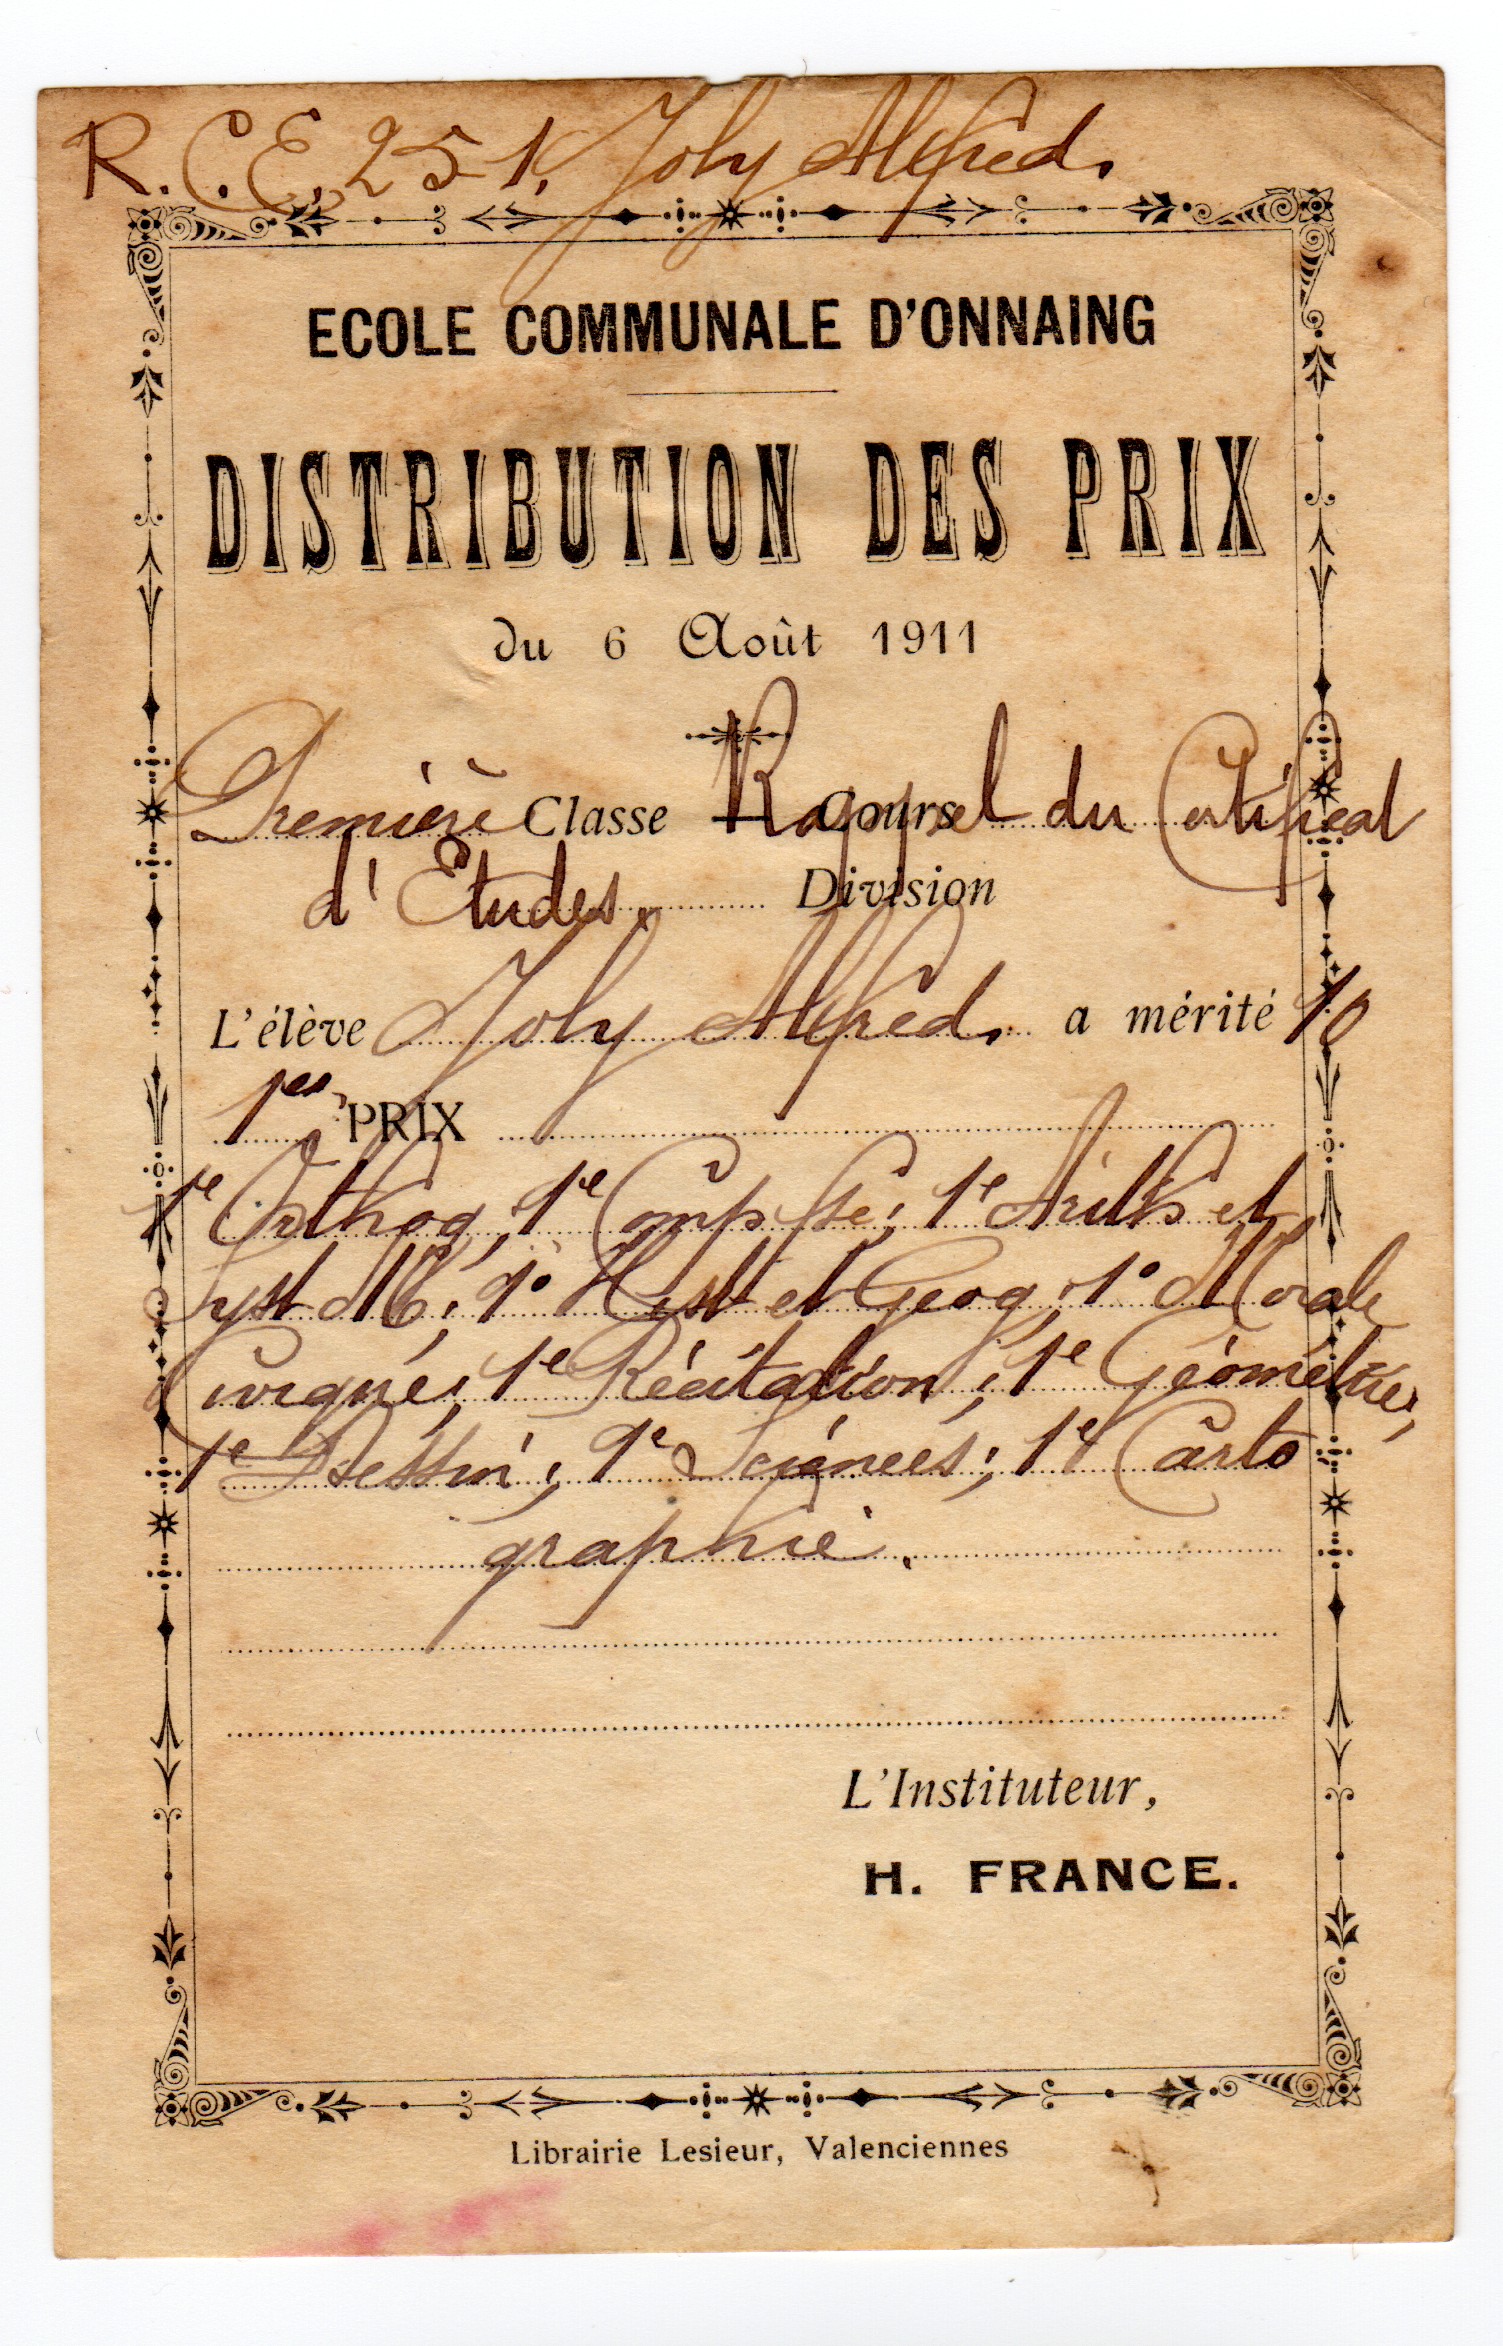 R. C. E. 251. Joly Alfred.
ECOLE COMMUNALE D'ONNAING
DISTRIBUTION DES PRIX
du 6 Août 1911
Première Classe — Cours Rappel du Certificat
d'Etudes. Division
L'élève Joly Alfred. a mérité 10
1ers PRIX
1e Orthog; 1e Comp fse; 1e Arith et
Syst M; 1e Hist et Géog; 1e Morale
Civique; 1e Récitation; 1e Géométrie;
1e Dessin; 1e Sciences; 1e Carto
graphie.
L'Instituteur,
H. FRANCE.
Librairie Lesieur, Valenciennes